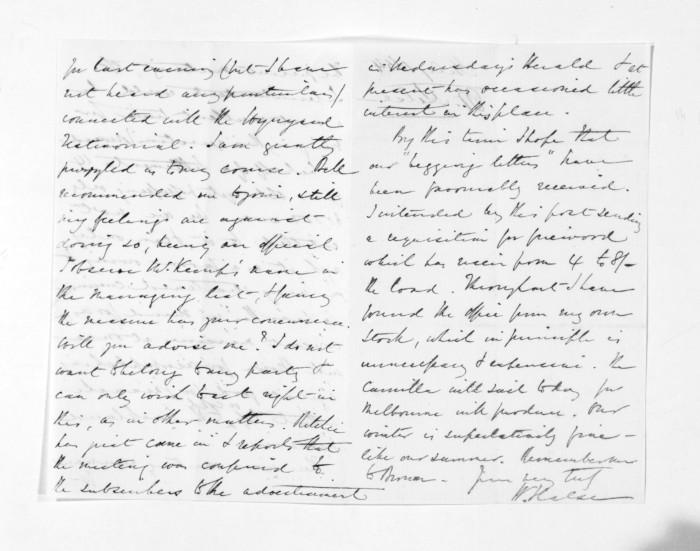 for last evening (but I have
not heard any particulars)
connected with the Wynyard
Testimonial. I am greatly
puzzled as to my course. Bell
recommended me to join, still
my feelings are against
doing so, being an official
I observe Mr Kemp's name in
the managing list, & fancy
the measure has your concurrence.
Will you advise me? I do not
want to belong to any party &
can only wish to act right in
this, as in other matters. Ritchie
has just come in & reports that
the meeting was confined to
the subscribers to the advertisement
in Wednesday's Herald & at
present has occasioned little
interest in this place.
By this time I hope that
our "begging letters" have
been favorably received.
I intended by this post sending
a requisition for firewood
which has risen from 4 to 8/-
the load. Throughout I have
found the office from my own
stock, which in principle is
unnecessary & expensive. The
Camilla will sail today for
Melbourne with produce. Our
winter is superlatively fine -
like our summer. Remember me
to - Yours very truly
H Halse